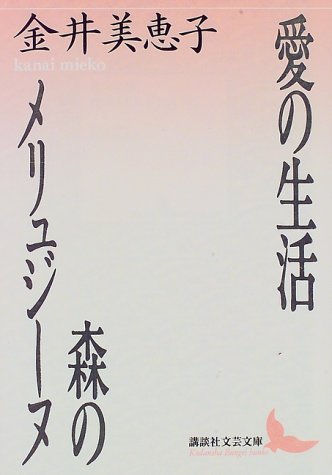 金井美恵子
kanai mieko
愛の生活
森の
メリュジーヌ
講談社文芸文庫
Kodansha Bungei bunko